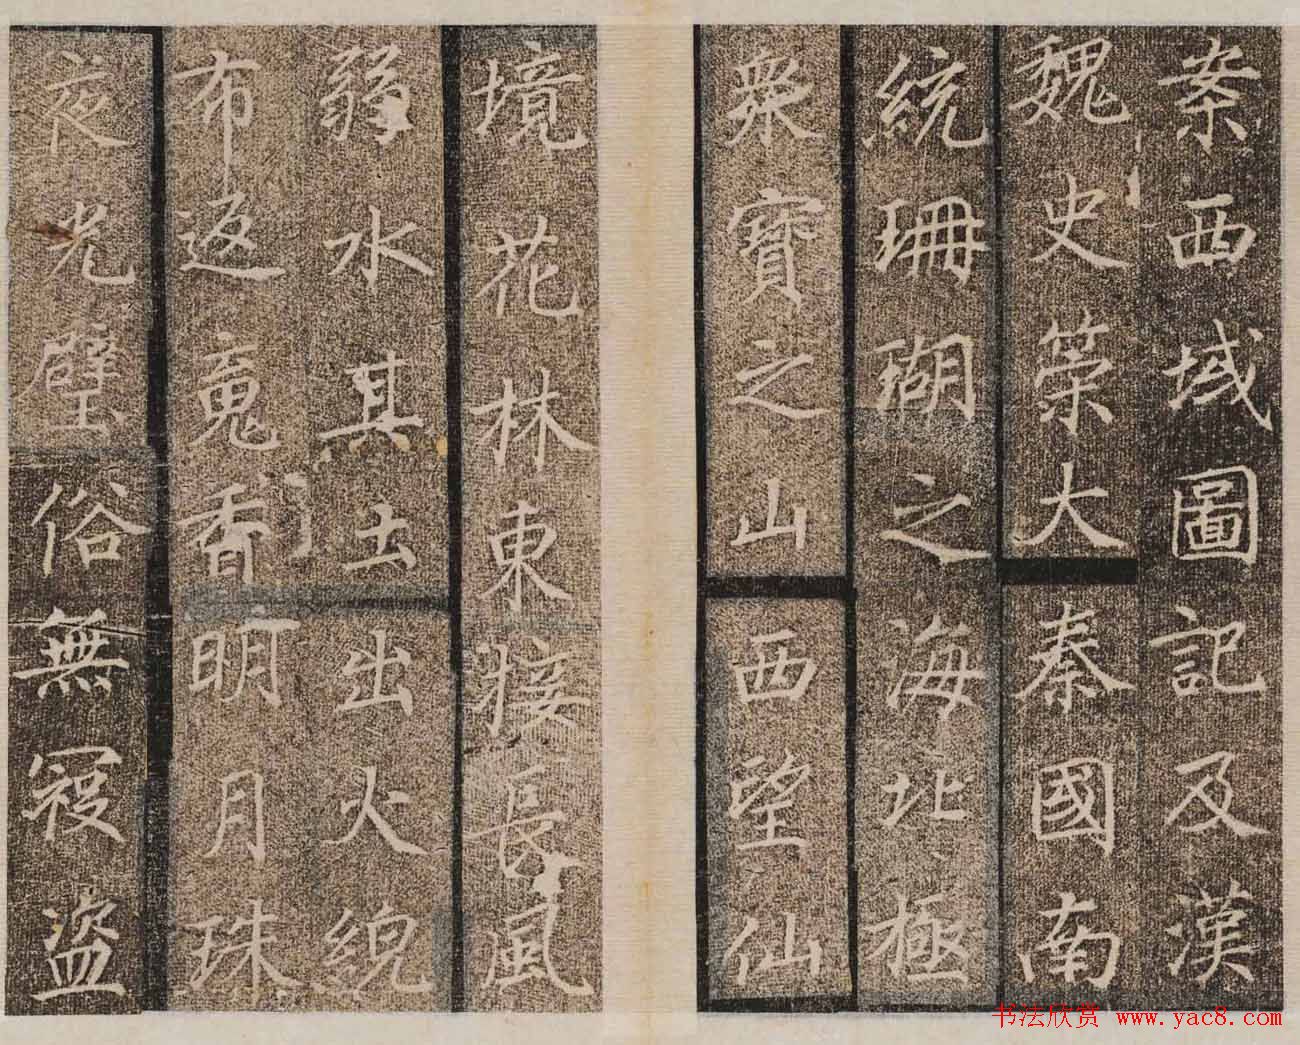 案西域圖記及漢
魏史策大秦國南
統珊瑚之海北極
眾寶之山西望仙
境花林東接長風
弱水其土出火綄
布返魂香明月珠
夜光璧俗無寇盜
书法欣赏 www.yac8.com